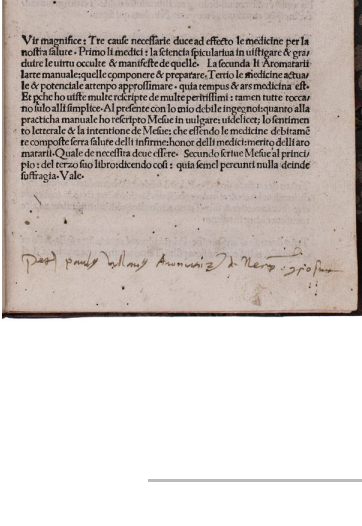 Vir magnifice: Tre cause necessarie duce ad effecto le medicine per la
nostra salute. Primo li medici: la scientia spiculatiua inuistigare & gra/
duire le uirtu occulte & manifeste de quelle. La secunda li Aromatarii
larte manuale: quelle componere & preparare. Tertio le medicine actua/
le & potenciale attenpo approssimare. quia tempus & ars medicina est.
Et pche ho uiste multe rescripte de multe peritissimi: tamen tutte tocca/
no sulo alli simplice. Al presente con lo mio debile ingegno: quanto alla
practicha manuale ho rescripto Mesue in uulgare: uidelicet; lo sentimen
to letterale & la intentione de Mesue; che essendo le medicine debitamẽ
te composte serra salute delli infirme: honor delli medici: merito delli aro
matarii. Quale de necessita deue essere. Secundo scriue Mesue al princi/
pio: del terzo suo libro: dicendo cosi: quia semel pereunti nulla deinde
suffragia. Vale.